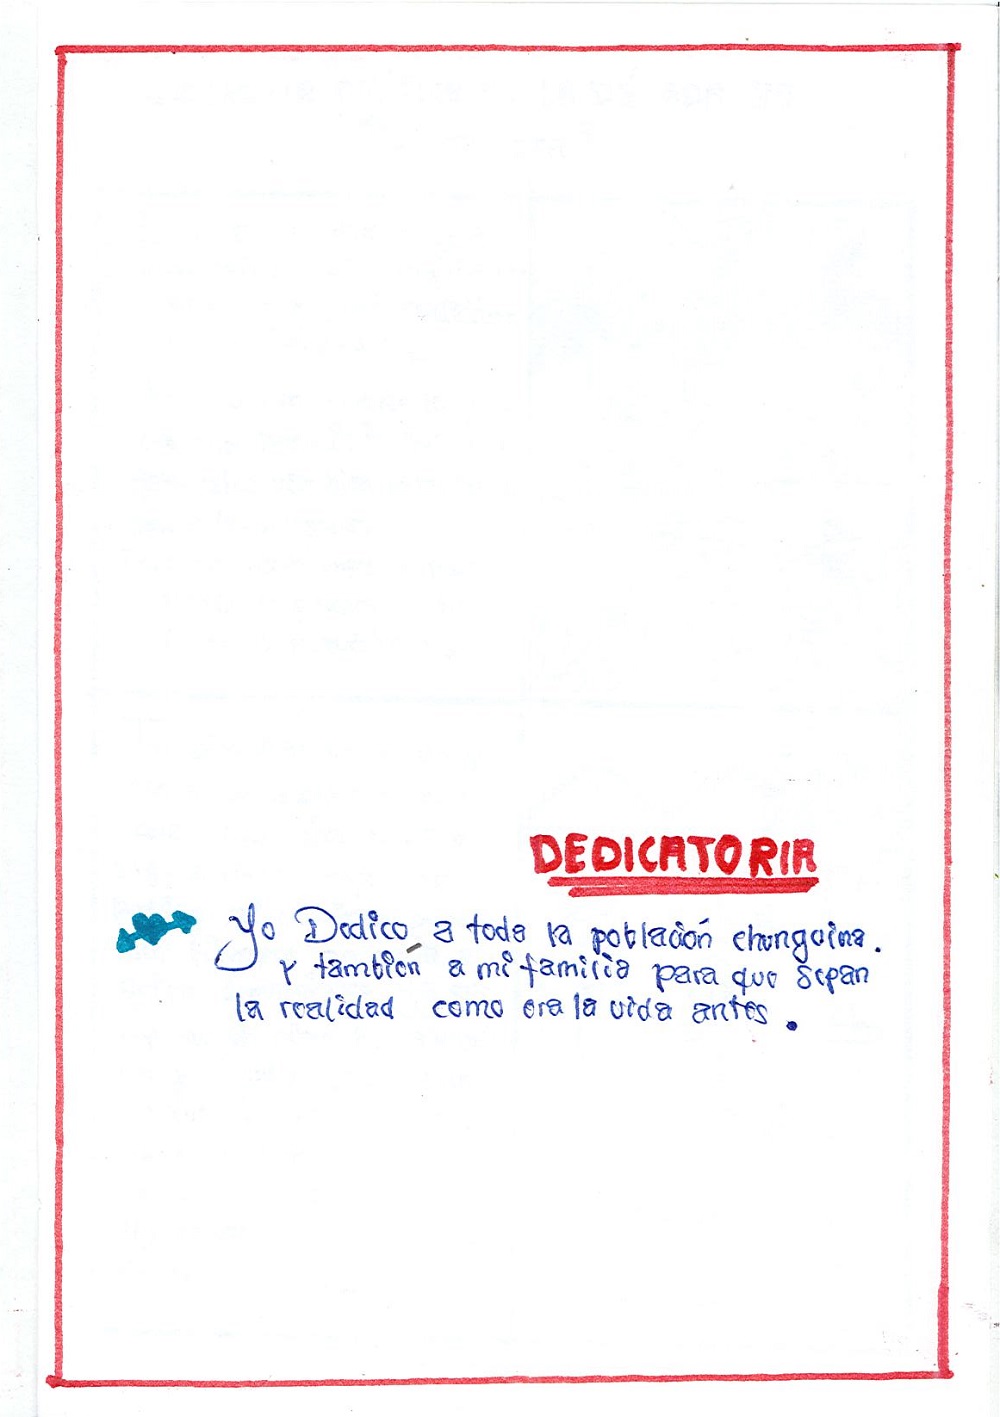 DEDICATORIA
Yo Dedico a toda la población chunguina.
y también a mi familia para que sepan
la realidad como era la vida antes.